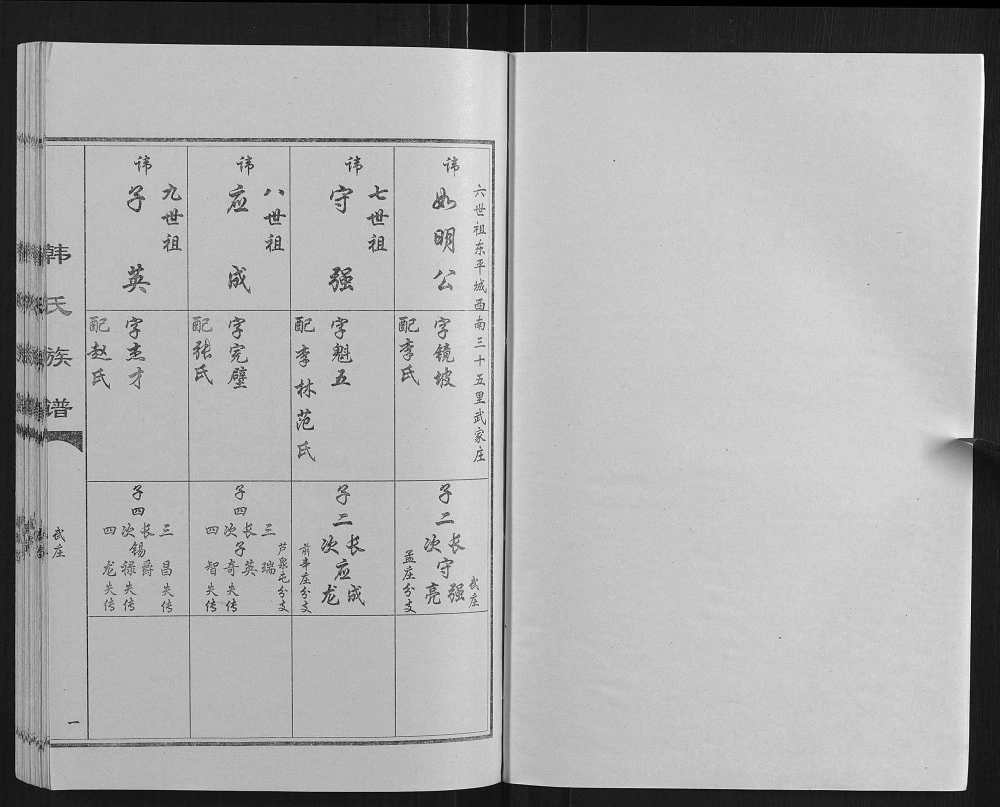 六世祖东平城西南三十五里武家庄
讳 如明公
字镜坡
配李氏
子二
长守强 武庄
次守亮 孟庄分支
七世祖
讳 守强
字魁五
配李林范氏
子二
长应成
次应龙 前辛庄分支
八世祖
讳 应成
字完璧
配张氏
子四
三子瑞 芦泉屯分支
长子英
次子奇 失传
四子智 失传
九世祖
讳 子英
字杰才
配赵氏
子四
三锡昌 失传
长锡爵
次锡禄 失传
四锡龙 失传
韩氏族谱
武庄
一